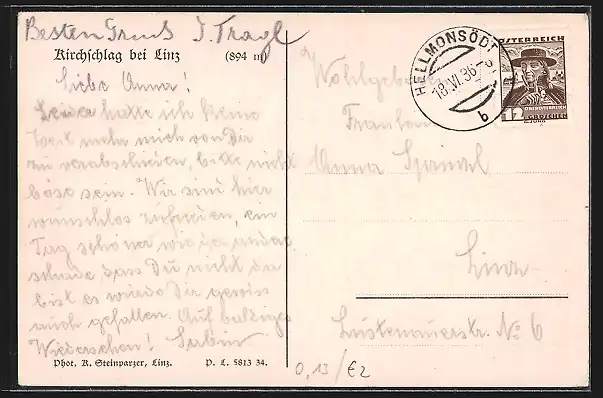 Besten Gruß J. Tragl
Kirchschlag bei Linz (894 m)
Liebe Anna!
Leider hatte ich keine
Zeit mehr mich von Dir
zu verabschieden, bitte nicht
böse sein. Wir sind hier
wunschlos zufrieden, ein
Tag schöner wie der andere
schade, dass Du nicht da
bist es würde Dir gewiss
auch gefallen. Auf baldiges
Wiedersehen!
Phot. K. Steinparzer, Linz. P. L. 5813 34.
Wohlgeboren
Fräulein
Anna
Linz
Lustenauerstr. No 6
0,13/€2
HELLMONSÖDT
18.VI.36
b
ÖSTERREICH
12 GROSCHEN